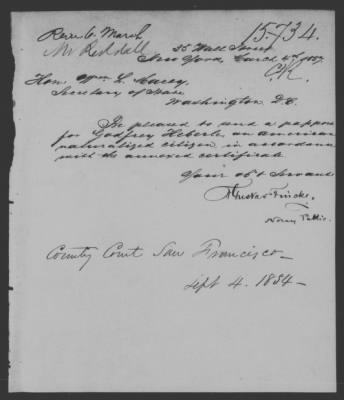 Recd 6. March
15.734.
Mr Riddall
36 Wall Street
New York, March 4th 1857
Hon. Wm L. Marcy,
Secretary of State
Washington D.C.
Be pleased to send a passport
for Godfrey Heberle an american
naturalized citizen in accordance
with the annexed certificate
Your obt Servant
Gustav Fincke,
Notary Public
County Court San Francisco—
Sept 4. 1854—